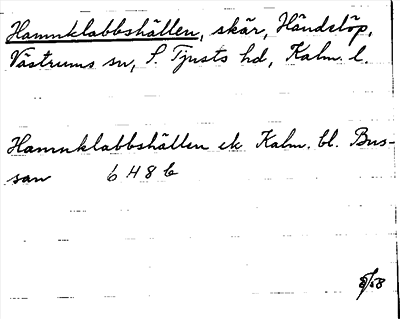 Hamnklabbshällen, skär, Händelöp,
Västrums sn, S. Tjusts hd, Kalm. l.
Hamnklabbshällen ek Kalm. bl. Bus-
san 6 H 8 b